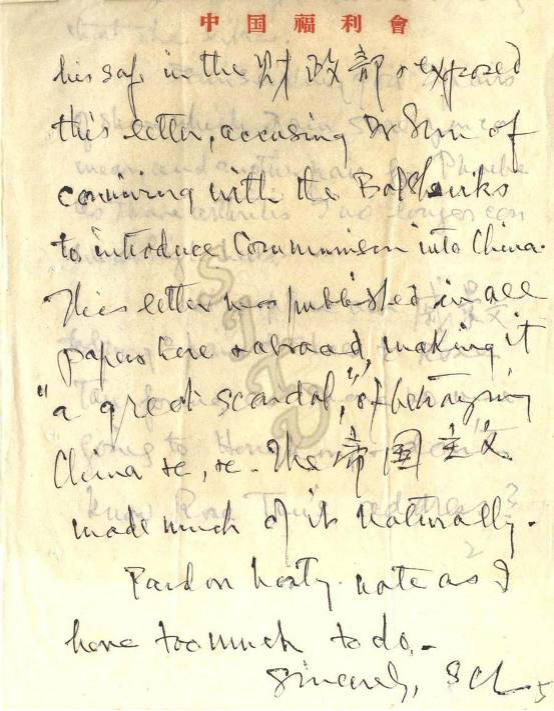 中国福利會
his safe in the 财政部 & exposed
this letter, accusing Dr Sun of
conniving with the Bolsheviks
to introduce Communism into China.
This letter was published in all
papers here & abroad, making it
"a great scandal," of betraying
China etc, etc. The 帝国主义
made much of it naturally.
Pardon hasty note as I
have too much to do. -
Sincerely, SCL
5